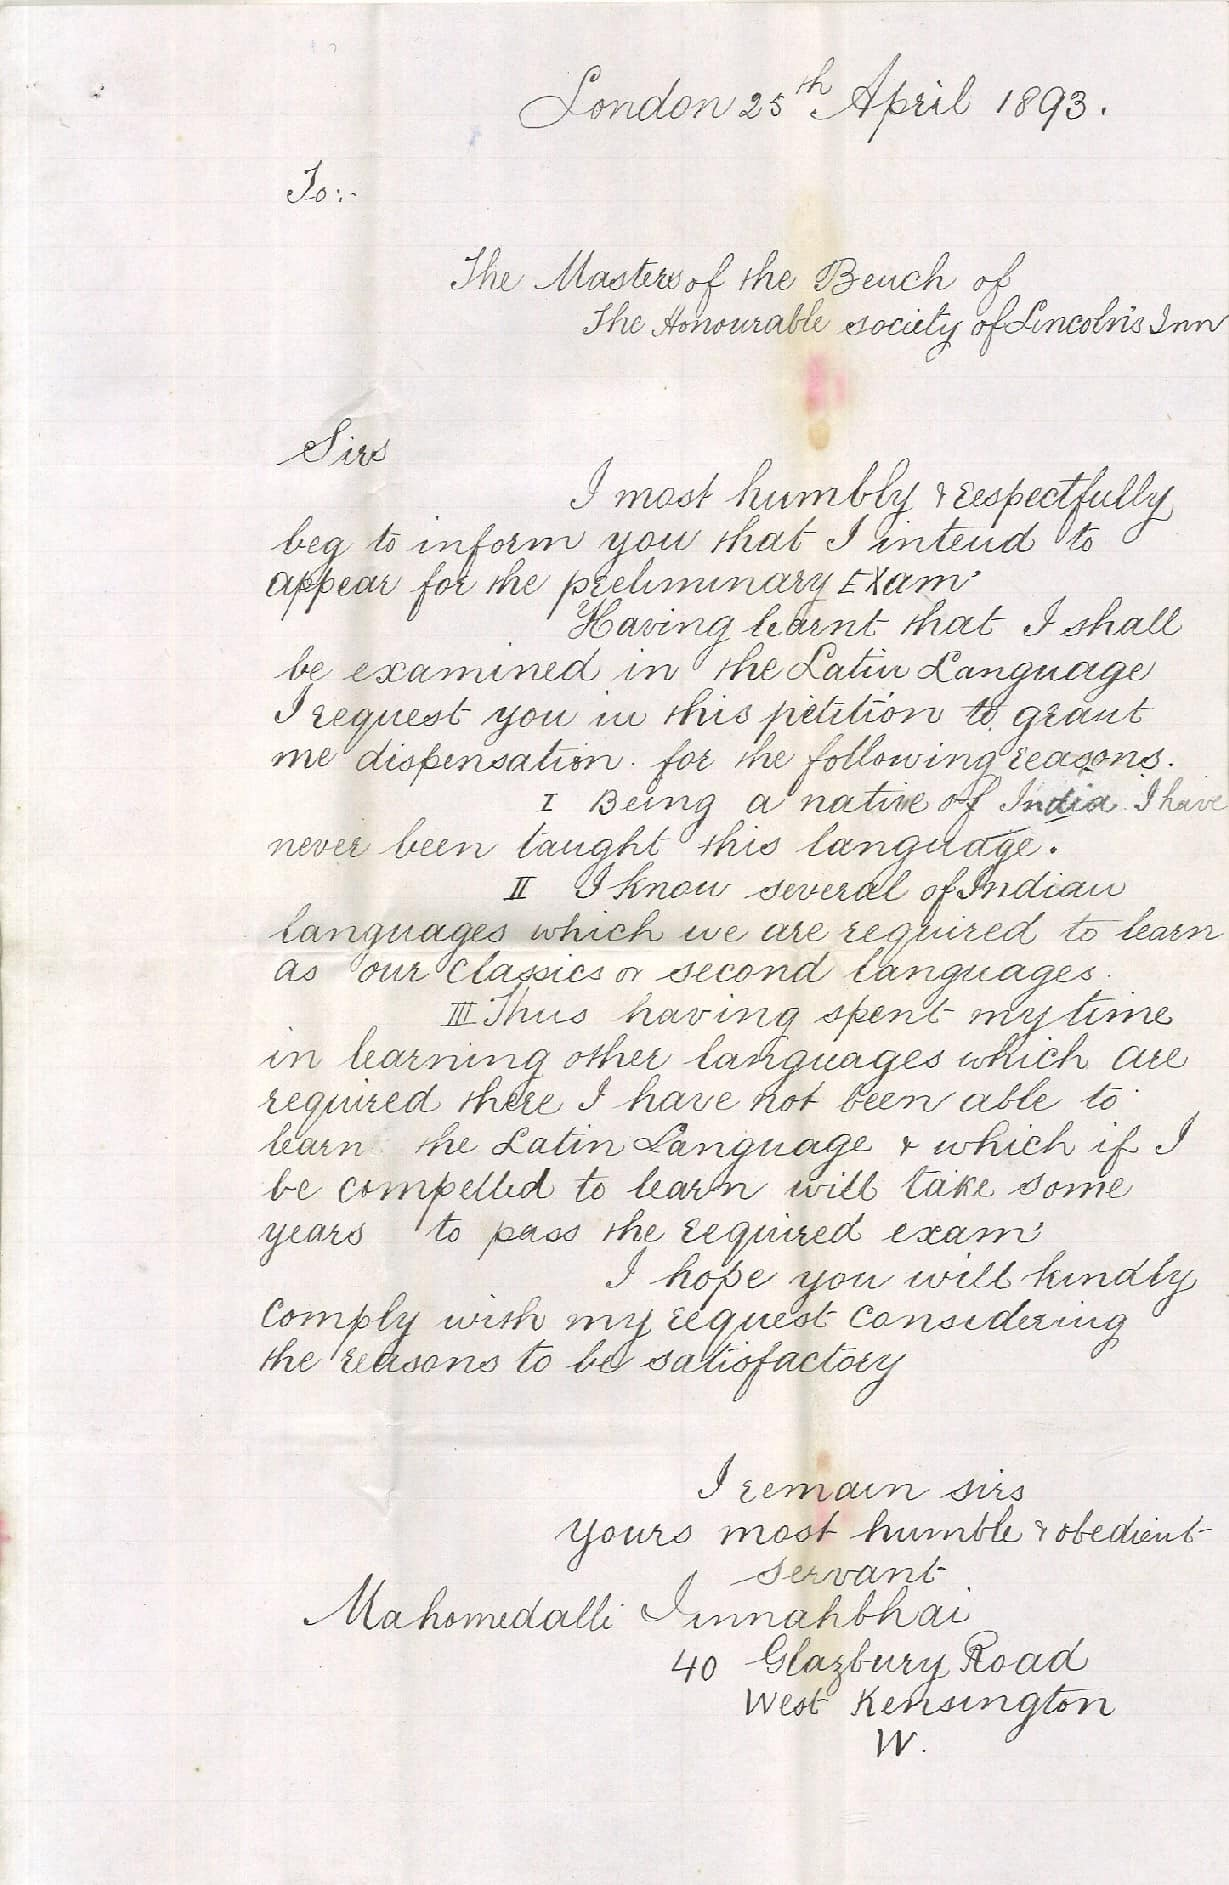 London 25th April 1893.
To:-
The Masters of the Bench of
The Honourable society of Lincoln's Inn
Sirs
I most humbly & respectfully
beg to inform you that I intend to
appear for the preliminary Exam'
Having learnt that I shall
be examined in the Latin Language
I request you in this petition to grant
me dispensation. for the following reasons.
I Being a native of India I have
never been taught this language.
II I know several of Indian
languages which we are required to learn
as our classics or second languages.
III Thus having spent my time
in learning other languages which are
required there I have not been able to
learn the Latin Language & which if I
be compelled to learn will take some
years to pass the required exam'
I hope you will kindly
comply with my request considering
the reasons to be satisfactory
I remain sirs
yours most humble & obedient
servant
Mahomedalli Jinnahbhai
40 Glazbury Road
West Kensington
W.